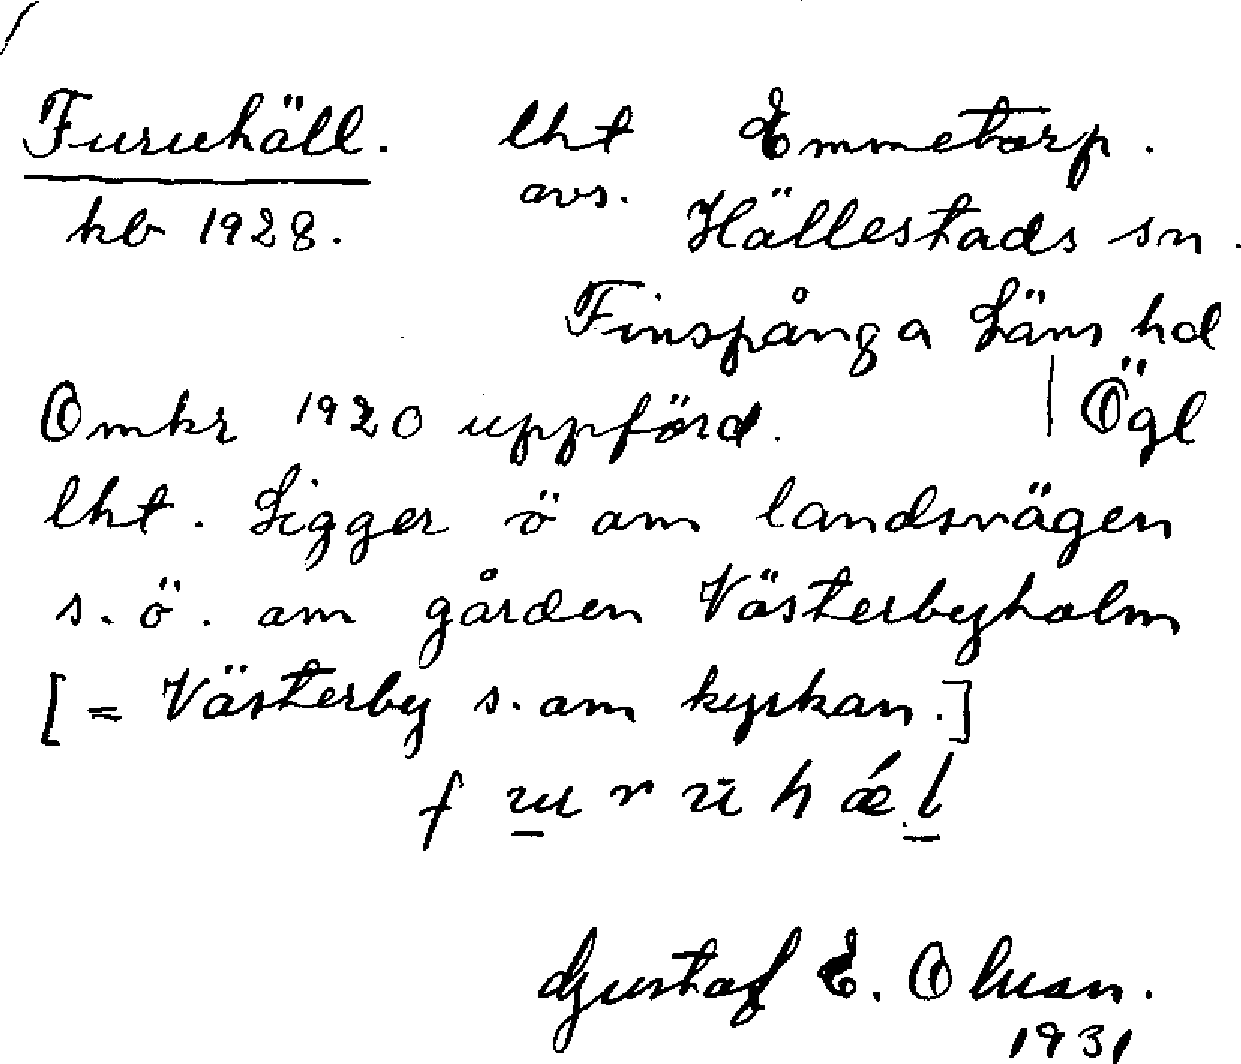 Furuhäll. lht Emmetorp.
avs.
kb 1928. Hällestads sn.
Finspånga Läns hd
Omkr 1920 uppförd. | Ögl
lht. Ligger ö om landsvägen
s.ö. om gården Västerbyholm
[= Västerby s. om kyrkan.]
Gustaf E. Olsson.
1931